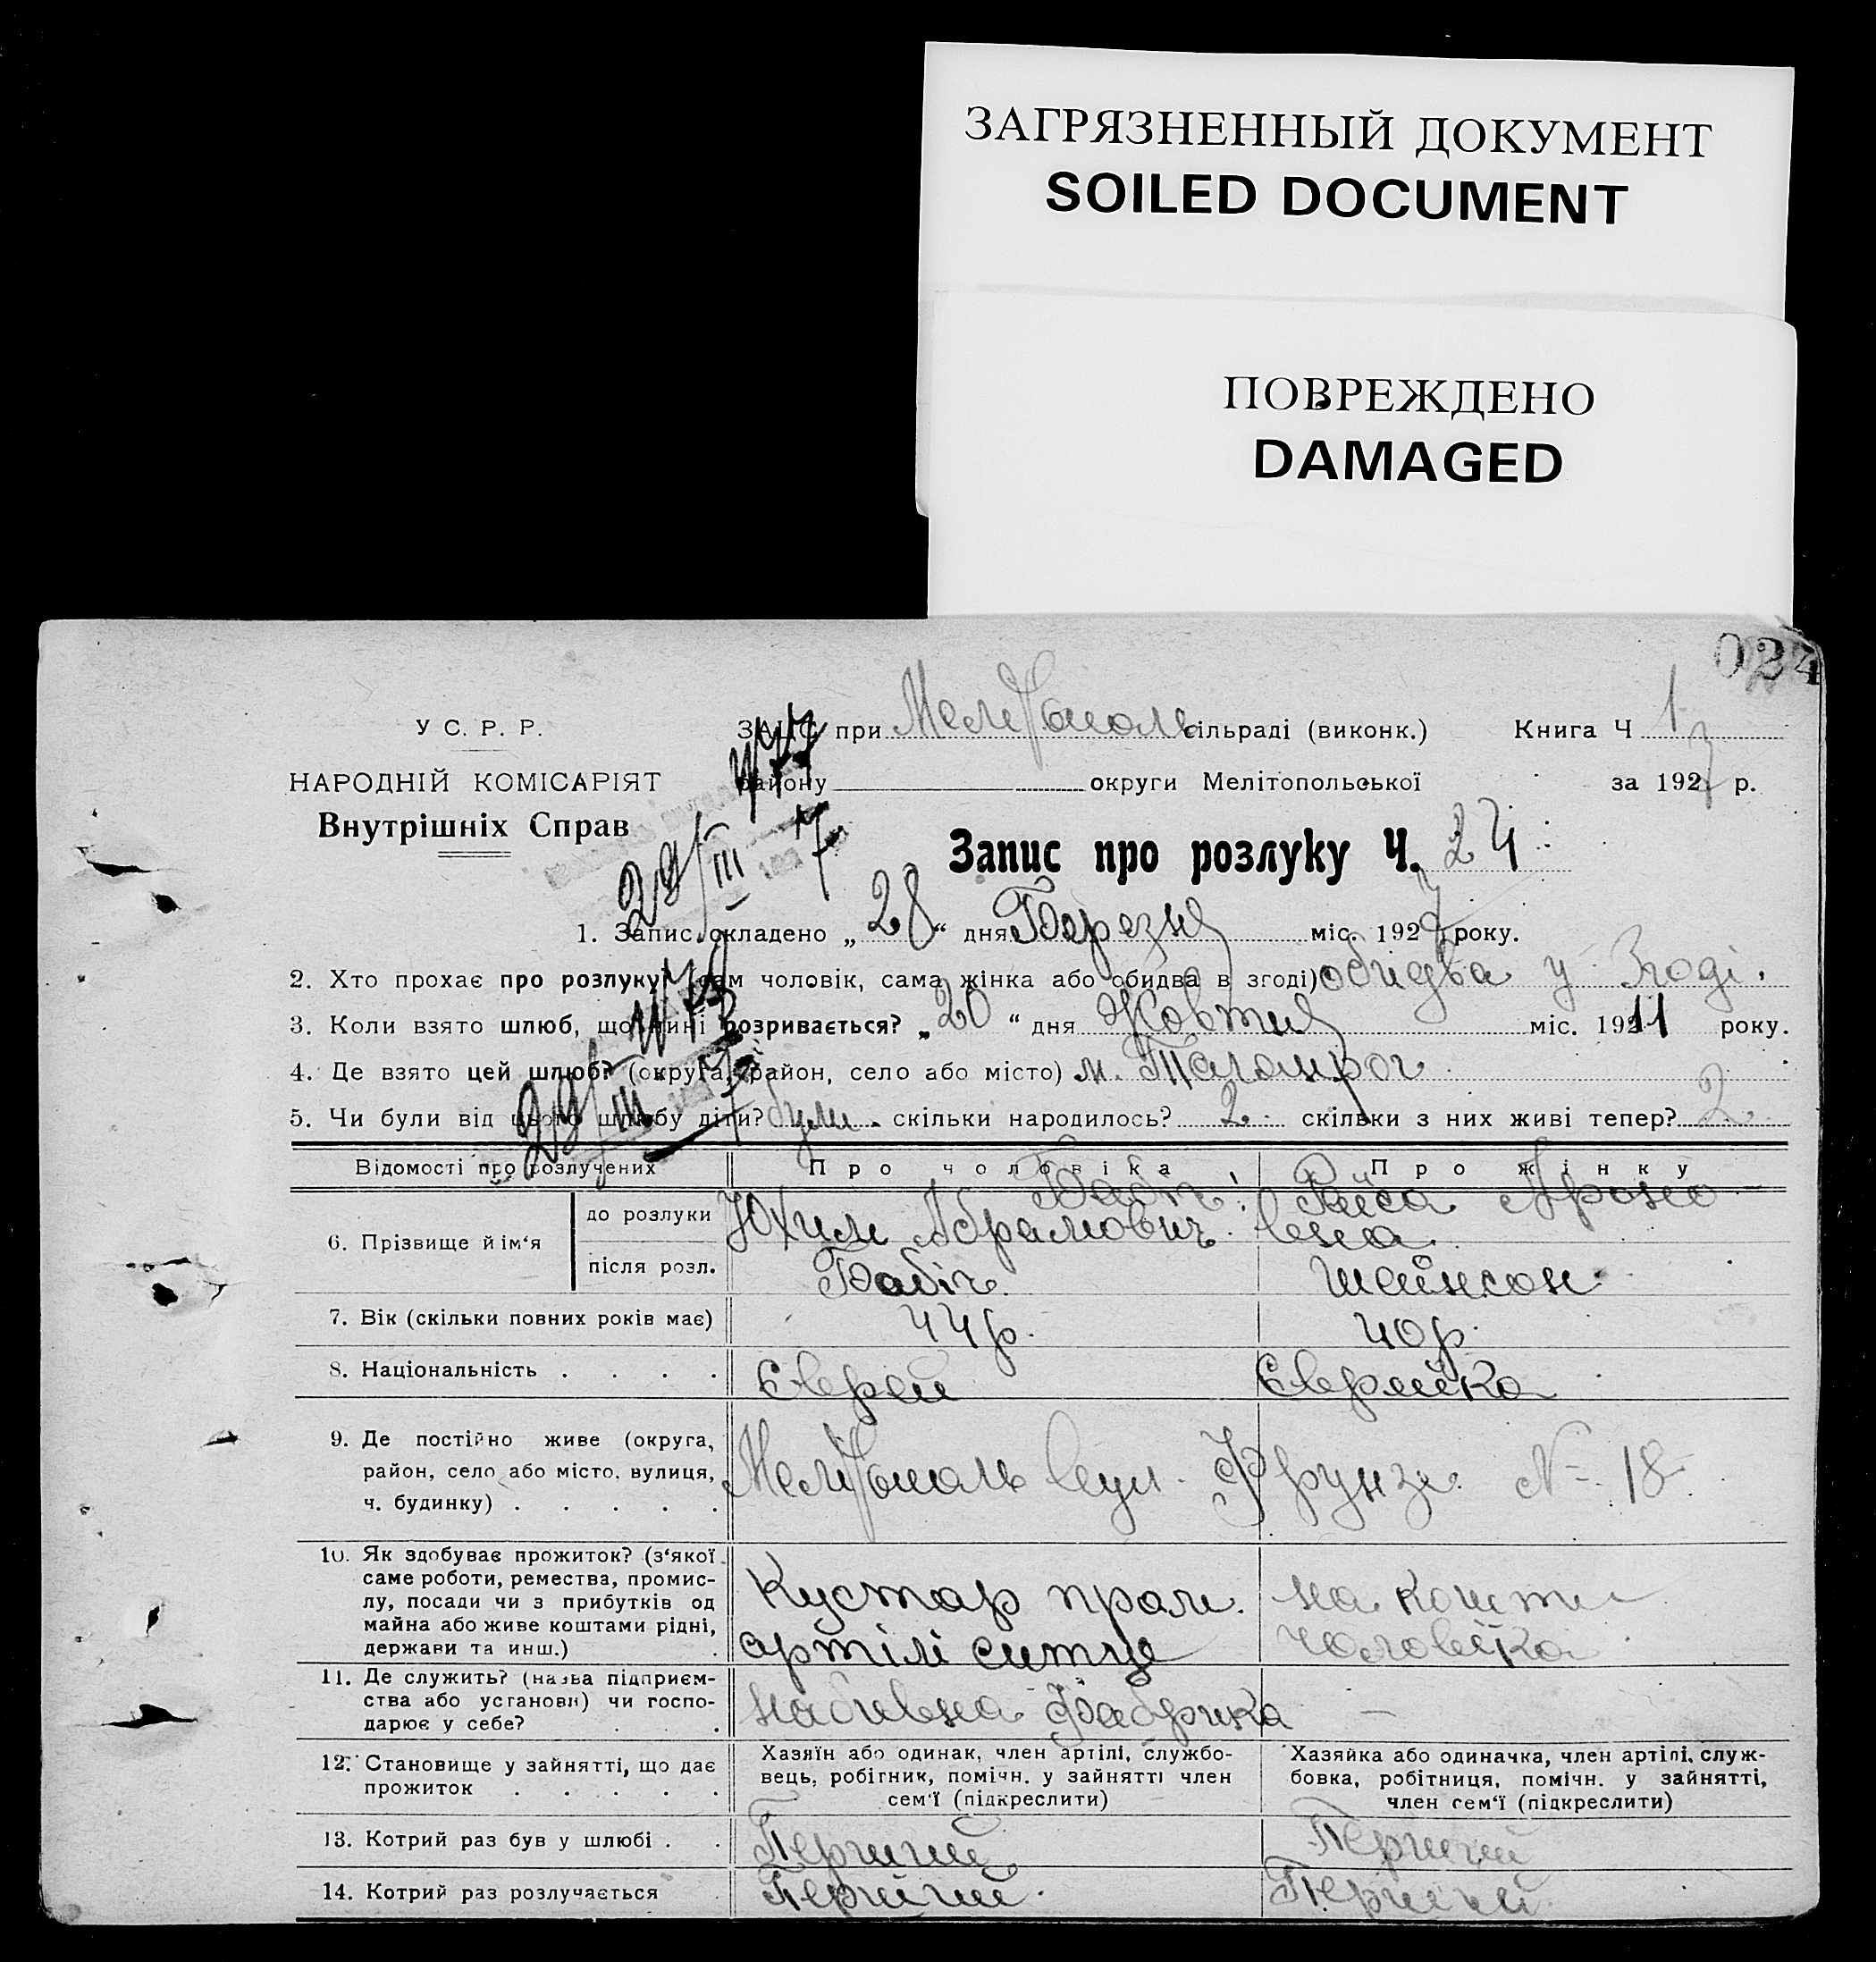 ЗАГРЯЗНЕННЫЙ ДОКУМЕНТ
SOILED DOCUMENT
ПОВРЕЖДЕНО
DAMAGED
024
У С. Р. Р.
НАРОДНІЙ КОМІСАРІЯТ
Внутрішніх Справ
ЗАЦС при Мелітополь сільраді (виконк.) Книга Ч 1
району округи Мелітопольської за 1927 р.
Запис про розлуку Ч. 24
29/III 7
1. Запис складено „28“ дня Березня міс. 1927 року.
2. Хто прохає про розлуку? (сам чоловік, сама жінка або обидва в згоді) обидва у згоді.
3. Коли взято шлюб, що нині розривається? „20“ дня Жовтня міс. 1911 року.
4. Де взято цей шлюб? (округа, район, село або місто) м. Таганрог
29/III
5. Чи були від цього шлюбу діти? були. скільки народилось? 2. скільки з них живі тепер? 2
Відомості про розлучених Про чоловіка Про жінку
6. Прізвище й ім‘я
до розлуки Бабіч Юхим Абрамович Раїса Ароновна
після розл. Бабіч Шейнсон
7. Вік (скільки повних років має) 44 р. 40 р.
8. Національність . . . . Єврей Єврейка
9. Де постійно живе (округа, район, село або місто, вулиця, ч. будинку) . . . . . Мелітополь вул. Фрунзе № 18
10. Як здобуває прожиток? (з‘якої саме роботи, ремества, промислу, посади чи з прибутків од майна або живе коштами рідні, держави та инш.) Кустар пром. артілі ситце на кошти чоловіка
11. Де служить? (назва підприємства або установи) чи господарює у себе? набивна фабрика —
12. Становище у зайнятті, що дає прожиток . . . . .
Хазяїн або одинак, член артілі, службовець, робітник, помічн. у зайнятті член сем‘ї (підкреслити)
Хазяйка або одиначка, член артілі, службовка, робітниця, помічн. у зайнятті, член сем‘ї (підкреслити)
13. Котрий раз був у шлюбі . . Перший Перший
14. Котрий раз розлучається Перший Перший